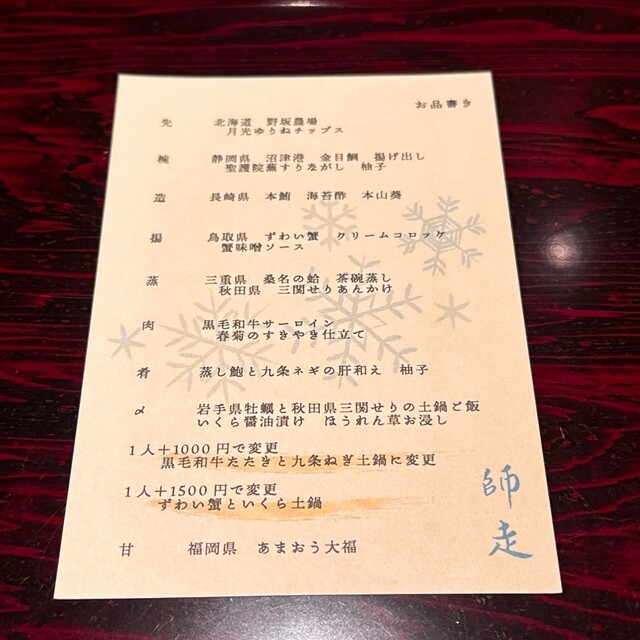 お品書き
先 北海道 野坂農場
月光ゆりねチップス
椀 静岡県 沼津港 金目鯛 揚げ出し
聖護院蕪すりながし 柚子
造 長崎県 本鮪 海苔酢 本山葵
揚 鳥取県 ずわい蟹 クリームコロッケ
蟹味噌ソース
蒸 三重県 桑名の蛤 茶碗蒸し
秋田県 三関せりあんかけ
肉 黒毛和牛サーロイン
春菊のすきやき仕立て
肴 蒸し鮑と九条ネギの肝和え 柚子
〆 岩手県牡蠣と秋田県三関せりの土鍋ご飯
いくら醤油漬け ほうれん草お浸し
1人+1000円で変更
黒毛和牛たたきと九条ねぎ土鍋に変更
1人+1500円で変更
ずわい蟹といくら土鍋
甘 福岡県 あまおう大福
師走